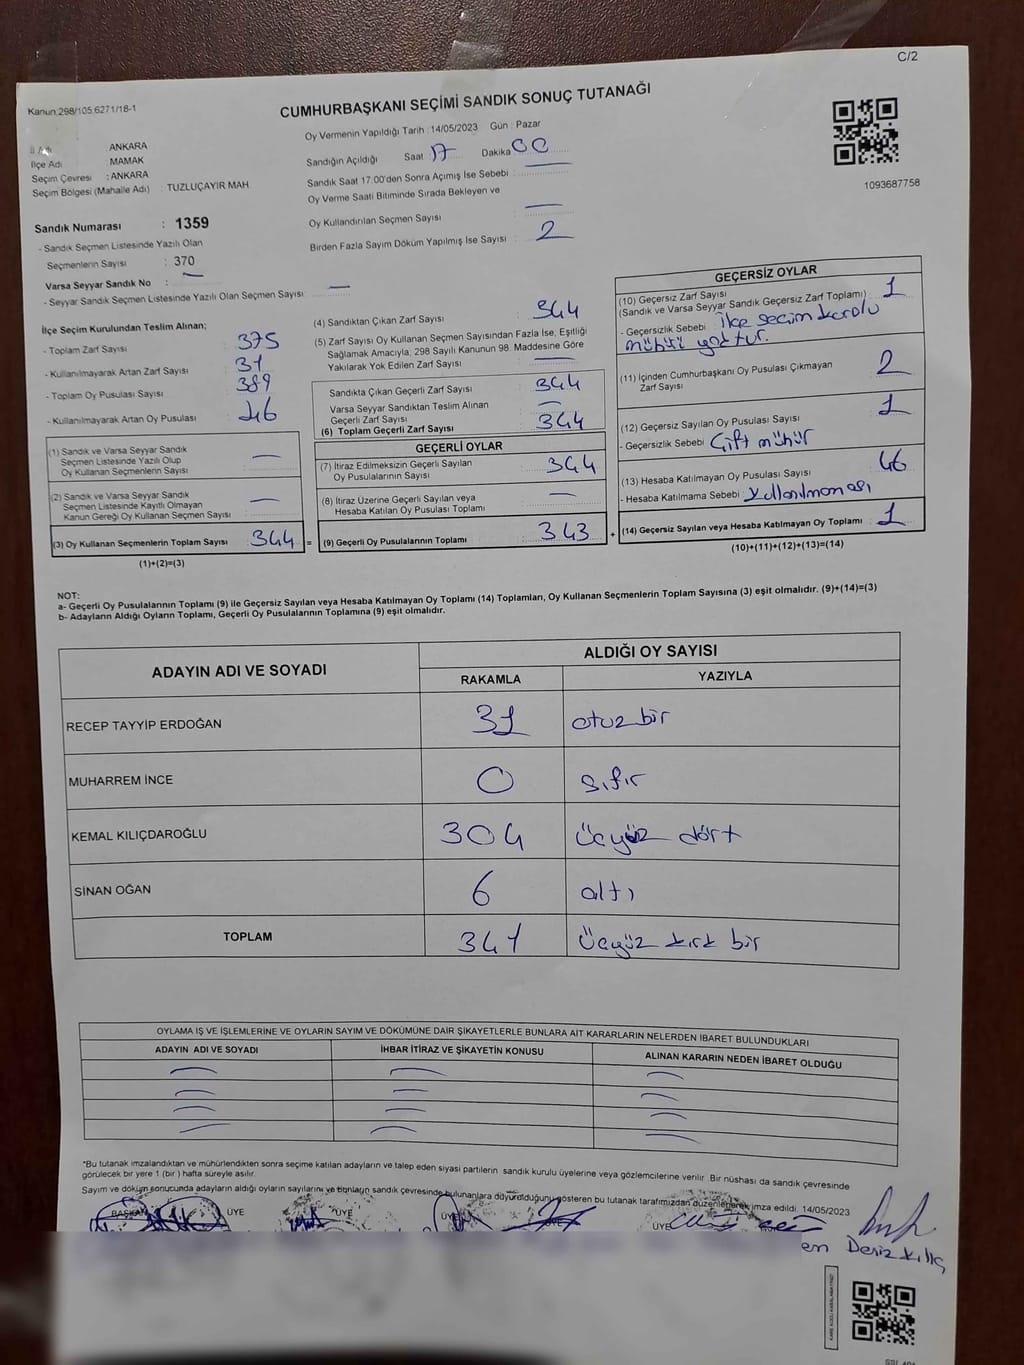 C/2
Kanun:298/105.6271/18-1
CUMHURBAŞKANI SEÇİMİ SANDIK SONUÇ TUTANAĞI
Oy Vermenin Yapıldığı Tarih : 14/05/2023 Gün : Pazar
Sandığın Açıldığı Saat 17 Dakika 00
Sandık Saat 17:00'den Sonra Açımış İse Sebebi :
Oy Verme Saati Bitiminde Sırada Bekleyen ve
Oy Kullandırılan Seçmen Sayısı : —
Birden Fazla Sayım Döküm Yapılmış İse Sayısı : 2
1093687758
İl Adı : ANKARA
İlçe Adı : MAMAK
Seçim Çevresi : ANKARA
Seçim Bölgesi (Mahalle Adı) : TUZLUÇAYIR MAH.
Sandık Numarası : 1359
- Sandık Seçmen Listesinde Yazılı Olan
Seçmenlerin Sayısı : 370
Varsa Seyyar Sandık No : —
- Seyyar Sandık Seçmen Listesinde Yazılı Olan Seçmen Sayısı : —
İlçe Seçim Kurulundan Teslim Alınan;
- Toplam Zarf Sayısı : 375
- Kullanılmayarak Artan Zarf Sayısı : 31
- Toplam Oy Pusulası Sayısı : 389
- Kullanılmayarak Artan Oy Pusulası : 46
(1) Sandık ve Varsa Seyyar Sandık
Seçmen Listesinde Yazılı Olup
Oy Kullanan Seçmenlerin Sayısı : —
(2) Sandık ve Varsa Seyyar Sandık
Seçmen Listesinde Kayıtlı Olmayan
Kanun Gereği Oy Kullanan Seçmen Sayısı : —
(3) Oy Kullanan Seçmenlerin Toplam Sayısı : 344 =
(1)+(2)=(3)
(4) Sandıktan Çıkan Zarf Sayısı : 344
(5) Zarf Sayısı Oy Kullanan Seçmen Sayısından Fazla İse, Eşitliği
Sağlamak Amacıyla, 298 Sayılı Kanunun 98. Maddesine Göre
Yakılarak Yok Edilen Zarf Sayısı : —
Sandıkta Çıkan Geçerli Zarf Sayısı : 344
Varsa Seyyar Sandıktan Teslim Alınan
Geçerli Zarf Sayısı : —
(6) Toplam Geçerli Zarf Sayısı : 344
GEÇERLİ OYLAR
(7) İtiraz Edilmeksizin Geçerli Sayılan
Oy Pusulalarının Sayısı : 344
(8) İtiraz Üzerine Geçerli Sayılan veya
Hesaba Katılan Oy Pusulası Toplamı : —
(9) Geçerli Oy Pusulalarının Toplamı : 343 +
GEÇERSİZ OYLAR
(10) Geçersiz Zarf Sayısı
(Sandık ve Varsa Seyyar Sandık Geçersiz Zarf Toplamı) : 1
- Geçersizlik Sebebi : ilçe seçim kurulu
mührü yoktur.
(11) İçinden Cumhurbaşkanı Oy Pusulası Çıkmayan
Zarf Sayısı : 2
(12) Geçersiz Sayılan Oy Pusulası Sayısı : 1
- Geçersizlik Sebebi Çift mühür
(13) Hesaba Katılmayan Oy Pusulası Sayısı : 46
- Hesaba Katılmama Sebebi kullanılmaması
(14) Geçersiz Sayılan veya Hesaba Katılmayan Oy Toplamı : 1
(10)+(11)+(12)+(13)=(14)
NOT:
a- Geçerli Oy Pusulalarının Toplamı (9) ile Geçersiz Sayılan veya Hesaba Katılmayan Oy Toplamı (14) Toplamları, Oy Kullanan Seçmenlerin Toplam Sayısına (3) eşit olmalıdır. (9)+(14)=(3)
b- Adayların Aldığı Oyların Toplamı, Geçerli Oy Pusulalarının Toplamına (9) eşit olmalıdır.
ADAYIN ADI VE SOYADI ALDIĞI OY SAYISI
RAKAMLA YAZIYLA
RECEP TAYYİP ERDOĞAN 31 otuz bir
MUHARREM İNCE 0 sıfır
KEMAL KILIÇDAROĞLU 304 üçyüz dört
SİNAN OĞAN 6 altı
TOPLAM 341 üçyüz kırk bir
OYLAMA İŞ VE İŞLEMLERİNE VE OYLARIN SAYIM VE DÖKÜMÜNE DAİR ŞİKAYETLERLE BUNLARA AİT KARARLARIN NELERDEN İBARET BULUNDUKLARI
ADAYIN ADI VE SOYADI İHBAR İTİRAZ VE ŞİKAYETİN KONUSU ALINAN KARARIN NEDEN İBARET OLDUĞU
*Bu tutanak imzalandıktan ve mühürlendikten sonra seçime katılan adayların ve talep eden siyasi partilerin sandık kurulu üyelerine veya gözlemcilerine verilir. Bir nüshası da sandık çevresinde
görülecek bir yere 1 (bir) hafta süreyle asılır.
Sayım ve döküm sonucunda adayların aldığı oyların sayılarını ve bunların sandık çevresinde bulunanlara duyurulduğunu gösteren bu tutanak tarafımızdan düzenlenerek imza edildi. 14/05/2023
BAŞKAN ÜYE ÜYE ÜYE ÜYE ÜYE
en Deniz Kılıç